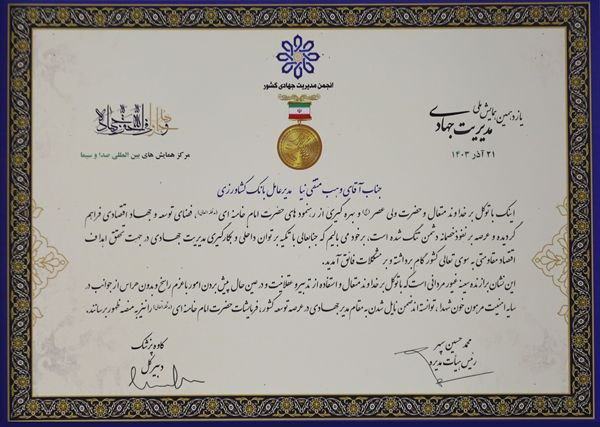 انجمن مدیریت جهادی کشور
یازدهمین همایش ملی
مدیریت جهادی
۲۱ آذر ۱۴۰۳
مرکز همایش های بین المللی صدا و سیما
جناب آقای وهب متقی نیا مدیرعامل بانک کشاورزی
اینک با توکل بر خداوند متعال و حضرت ولی عصر (عج) و بهره گیری از رهنمودهای حضرت امام خامنه ای (مدظله العالی)، فضای توسعه و جهاد اقتصادی فراهم
گردیده و عرصه بر نفوذ خصمانه دشمن تنگ شده است. برخود می بالیم که جنابعالی با تکیه بر توان داخلی و بکارگیری مدیریت جهادی در جهت تحقق اهداف
اقتصاد مقاومتی به سوی تعالی کشور گام برداشته و بر مشکلات فائق آمدید.
این نشان برازنده سینه غیور مردانی است که با توکل بر خداوند متعال و استفاده از تدبیر و عقلانیت و در عین حال پیش بردن امور با عزم راسخ و بدون هراس از جوانب در
سایه امنیت مرهون خون شهدا، توانسته اند ضمن نایل شدن به مقام مدیر جهادی در عرصه توسعه کشور، فرمایشات حضرت امام خامنه ای (مدظله العالی) را نیز به منصه ظهور برسانند.
محمد حسین سپهر
رئیس هیأت مدیره
کاوه پزشک
دبیر کل